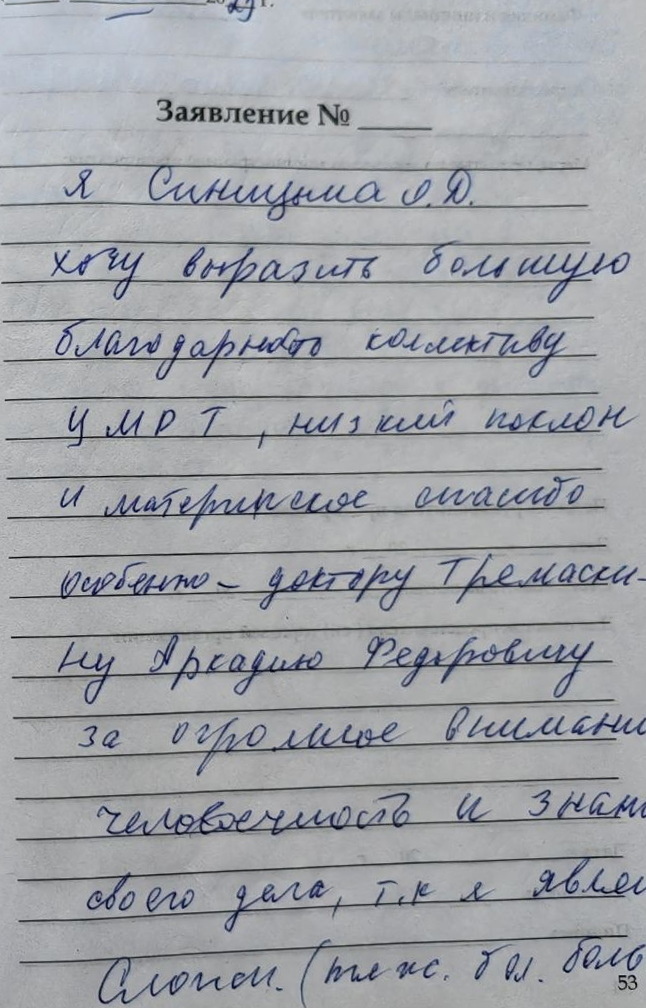 Заявление №
Я Синицына О.Д.
хочу выразить большую
благодарность коллективу
ЦМРТ, низкий поклон
и материнское спасибо
особенно – доктору Тремаски-
ну Аркадию Федоровичу
за огромное внимани
человечность и знан
своего дела, т.к я являю
Сложн. (тяж. бол. боль
53